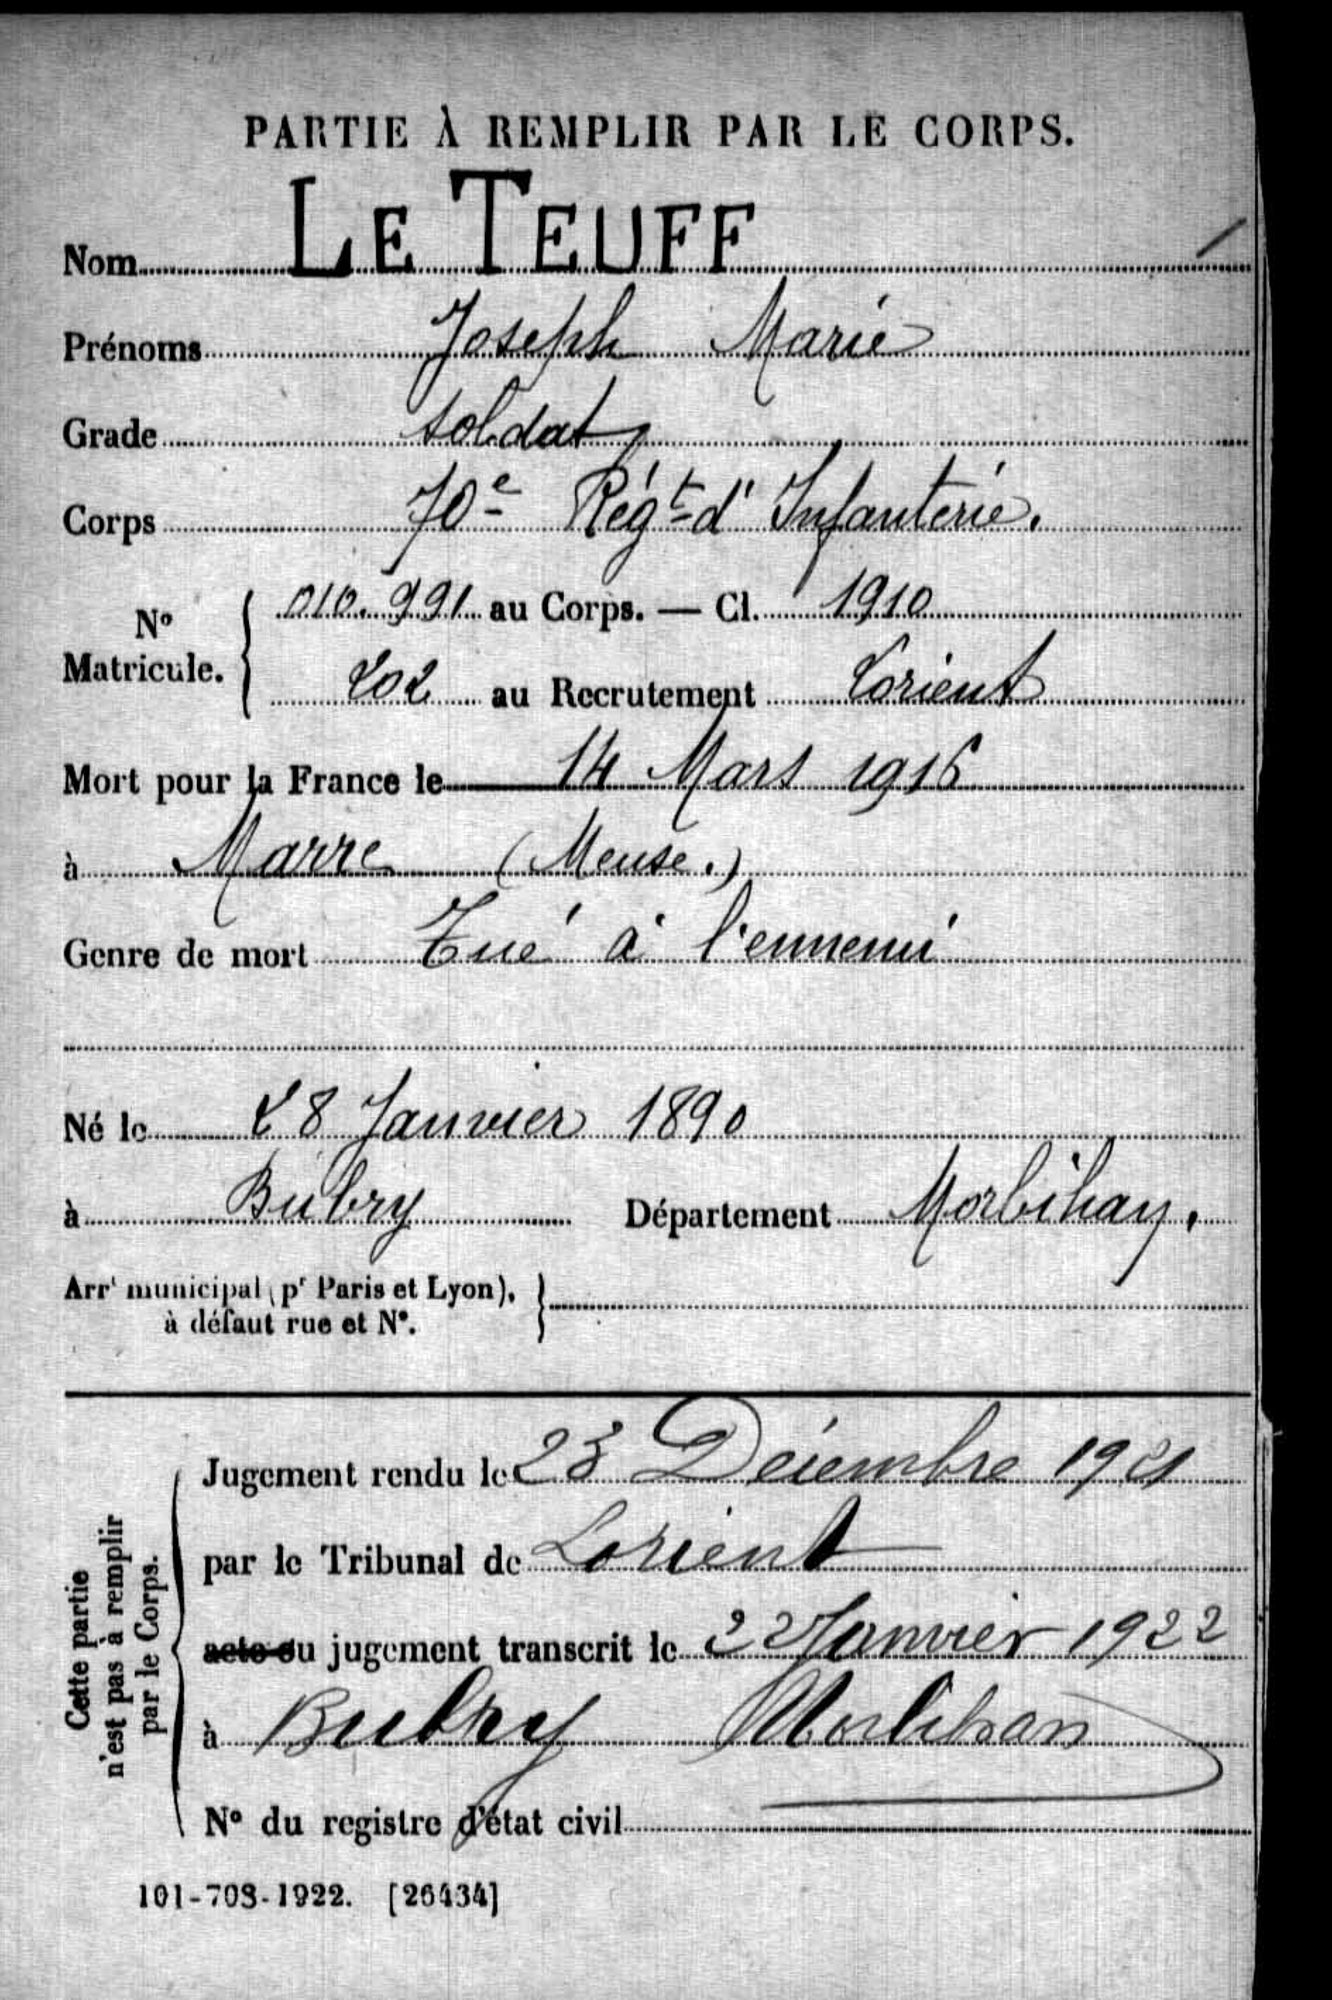 PARTIE À REMPLIR PAR LE CORPS.
Nom LE TEUFF
Prénoms Joseph Marie
Grade soldat
Corps 70e Régt d'Infanterie.
N° Matricule. 010.991 au Corps. — Cl. 1910
202 au Recrutement Lorient
Mort pour la France le 14 Mars 1916
à Marre (Meuse.)
Genre de mort Tué à l'ennemi
Né le 28 Janvier 1890
à Bubry Département Morbihan.
Arrt municipal (pr Paris et Lyon),
à défaut rue et N°.
Cette partie
n'est pas à remplir
par le Corps.
Jugement rendu le 23 Décembre 1921
par le Tribunal de Lorient
acte ou jugement transcrit le 22 Janvier 1922
à Bubry Morbihan
N° du registre d'état civil
101-708-1922. [26434]